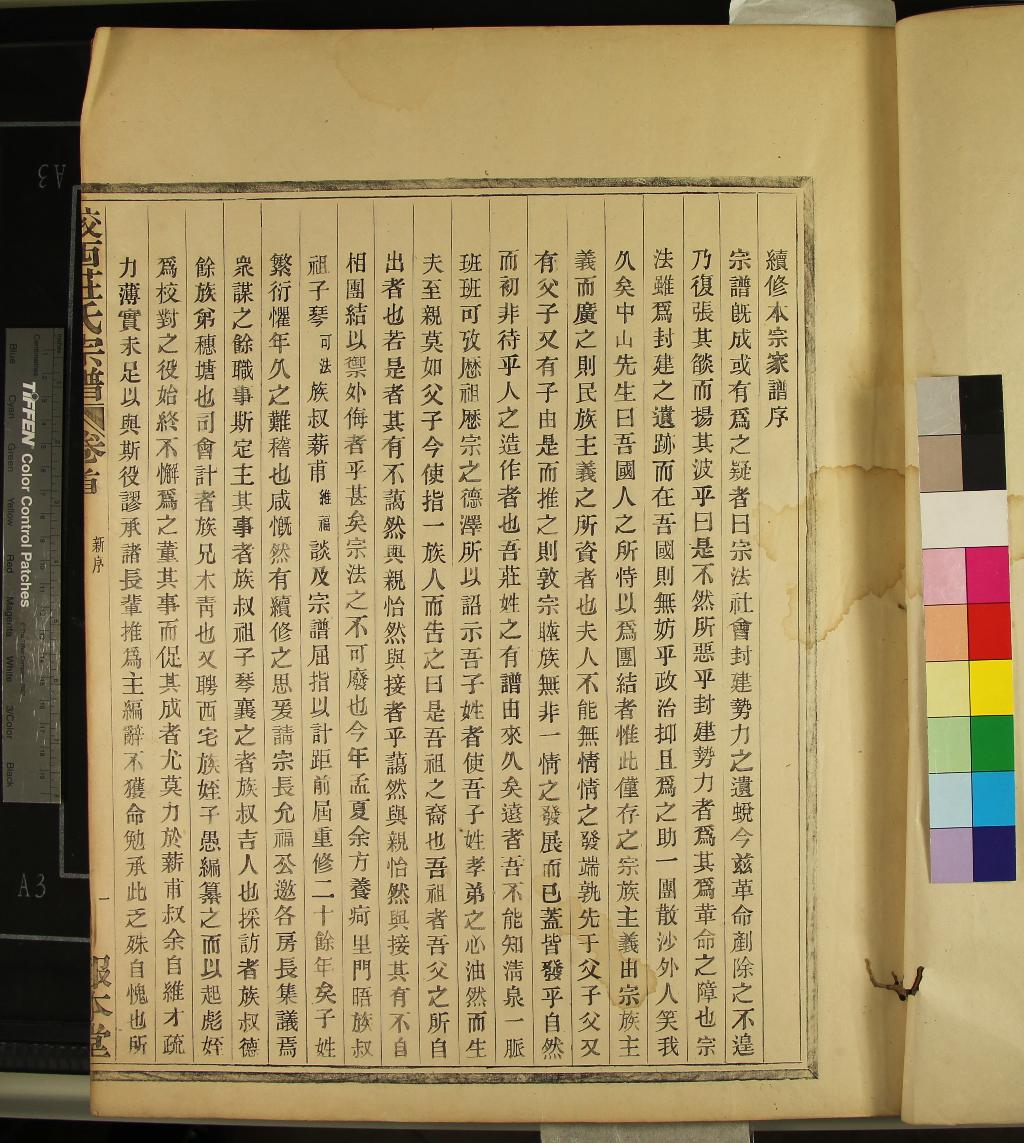 續修本宗家譜序
宗譜旣成或有爲之疑者曰宗法社會封建勢力之遺蛻今兹革命剷除之不遑
乃復張其燄而揚其波乎曰是不然所惡乎封建勢力者爲其爲革命之障也宗
法雖爲封建之遺跡而在吾國則無妨乎政治抑且爲之助一團散沙外人笑我
久矣中山先生曰吾國人之所恃以爲團結者惟此僅存之宗族主義由宗族主
義而廣之則民族主義之所資者也夫人不能無情情之發端孰先于父子父又
有父子又有子由是而推之則敦宗睦族無非一情之發展而已蓋皆發乎自然
而初非待乎人之造作者也吾莊姓之有譜由來久矣遠者吾不能知清泉一脈
班班可攷歷祖歷宗之德澤所以詔示吾子姓者使吾子姓孝弟之心油然而生
夫至親莫如父子今使指一族人而告之曰是吾祖之裔也吾祖者吾父之所自
出者也若是者其有不藹然與親怡然與接者乎藹然與親怡然與接其有不自
相團結以禦外侮者乎甚矣宗法之不可廢也今年孟夏余方養疴里門晤族叔
祖子琴可法族叔薪甫維福談及宗譜屈指以計距前屆重修二十餘年矣子姓
繁衍懼年久之難稽也咸慨然有續修之思爰請宗長允福公邀各房長集議焉
衆謀之餘職事斯定主其事者族叔祖子琴襄之者族叔吉人也採訪者族叔德
餘族弟穗塘也司會計者族兄木靑也又聘西宅族姪子愚編纂之而以起彪姪
爲校對之役始終不懈爲之董其事而促其成者尤莫力於薪甫叔余自維才疏
力薄實未足以與斯役謬承諸長輩推爲主編辭不獲命勉承此乏殊自愧也所
校西莊氏宗譜
卷首
新序
一
報本堂
A3
A3
TIFFEN Color Control Patches
Blue
Cyan
Green
Yellow
Red
Magenta
White
3/Color
Black
Centimetres
Inches